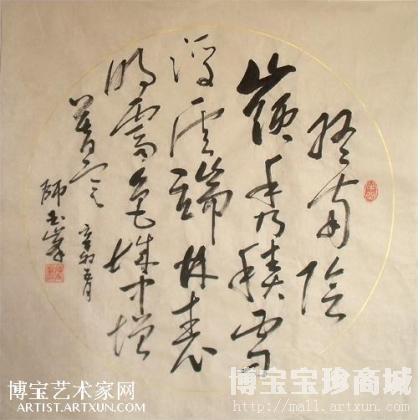 终南陰
嶺秀積雪
浮云端林表
明霽色城中增
暮寒
辛卯
博宝艺术家网
ARTIST.ARTXUN.COM
博宝宝珍商城
http://mall.artxun.com